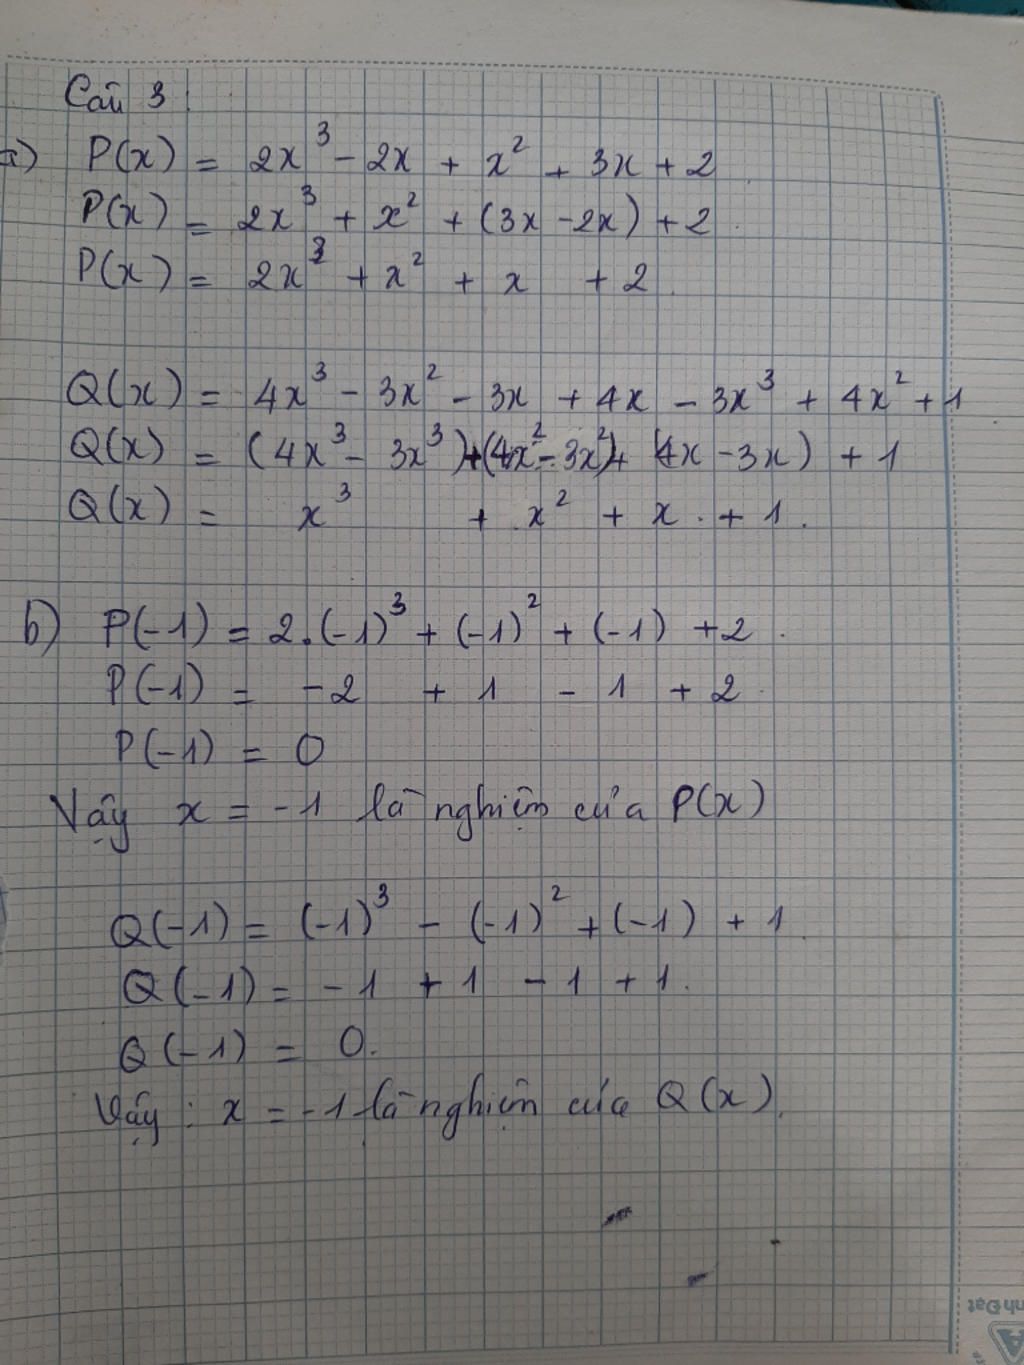 Câu 3:
a) P(x) = 2x³ - 2x + x² + 3x + 2
P(x) = 2x³ + x² + (3x - 2x) + 2.
P(x) = 2x³ + x² + x + 2.
Q(x) = 4x³ - 3x² - 3x + 4x - 3x³ + 4x² + 1
Q(x) = (4x³ - 3x³) + (4x² - 3x²) + (4x - 3x) + 1
Q(x) = x³ + x² + x + 1.
b) P(-1) = 2.(-1)³ + (-1)² + (-1) + 2.
P(-1) = -2 + 1 - 1 + 2.
P(-1) = 0
Vậy x = -1 là nghiệm của P(x)
Q(-1) = (-1)³ - (-1)² + (-1) + 1.
Q(-1) = -1 + 1 - 1 + 1.
Q(-1) = 0.
Vậy: x = -1 là nghiệm của Q(x).